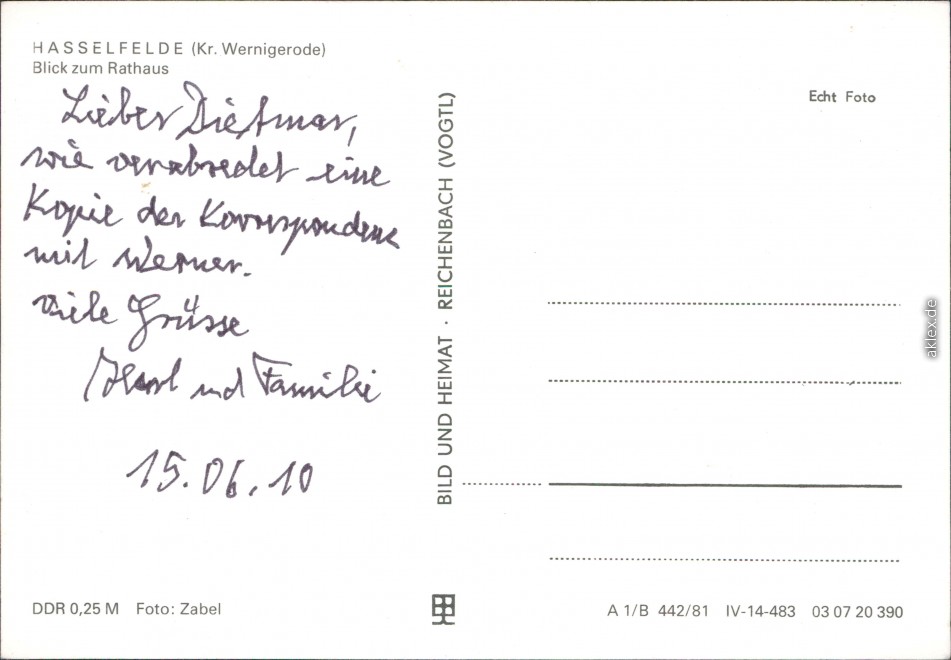 HASSELFELDE (Kr. Wernigerode)
Blick zum Rathaus
Lieber Dietmar,
wie verabredet eine
Kopie der Korrespondenz
mit Werner.
Viele Grüsse
und Familie
15.06.10
DDR 0,25 M Foto: Zabel
BILD UND HEIMAT · REICHENBACH (VOGTL)
Echt Foto
A 1/B 442/81 IV-14-483 03 07 20 390
aklex.de